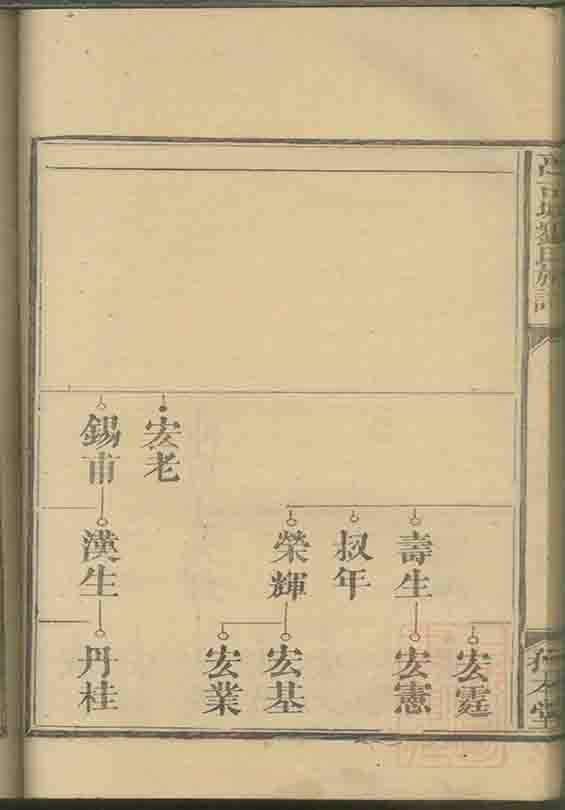 宏老
錫甫
壽生
叔年
榮輝
漢生
宏霆
宏憲
宏基
宏業
丹桂
氏族譜
本堂